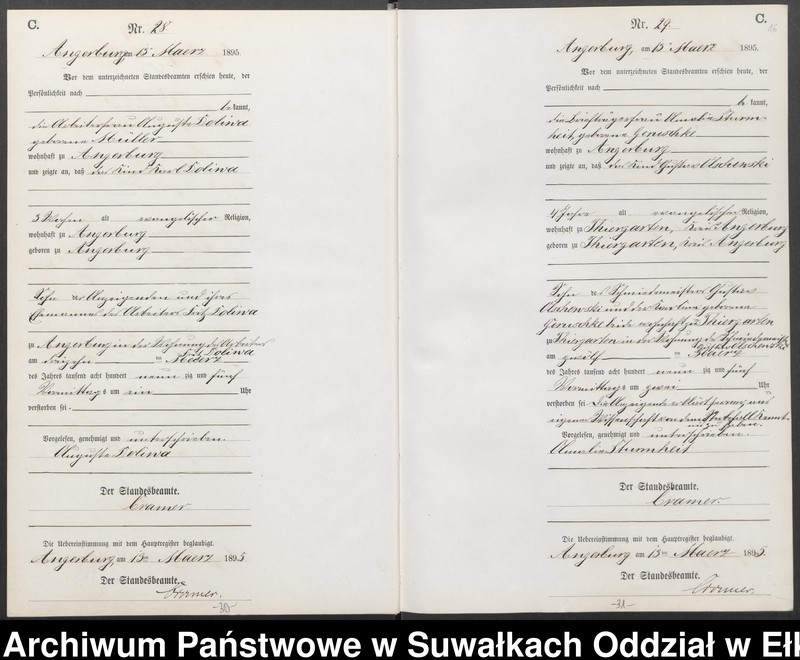 C.
Nr. 28
Angerburg, am 13 Maerz 1895.
Vor dem unterzeichneten Standesbeamten erschien heute, der
Persönlichkeit nach
be kannt,
die Arbeiterfrau Auguste Toliwa
geborene Müller
wohnhaft zu Angerburg
und zeigte an, daß das Kind Karl Toliwa
3 Wochen alt evangelischer Religion,
wohnhaft zu Angerburg
geboren zu Angerburg
Sohn der Anzeigenden und ihres
Ehemannes des Arbeiters Toliwa
zu Angerburg in der Wohnung des Arbeiters
Toliwa
am dreizehn ten Maerz
des Jahres tausend acht hundert neun zig und fünf
Vormittags um ein Uhr
verstorben sei.
Vorgelesen, genehmigt und unterschrieben.
Auguste Toliwa
Der Standesbeamte.
Cramer
Die Uebereinstimmung mit dem Hauptregister beglaubigt.
Angerburg am 13ten Maerz 1895
Der Standesbeamte.
Cramer.
-30-
C.
Nr. 29
Angerburg, am 13 Maerz 1895.
Vor dem unterzeichneten Standesbeamten erschien heute, der
Persönlichkeit nach
be kannt,
die Briefträgerfrau Amalie Sturm-
heit, geborene Genischke
wohnhaft zu Angerburg
und zeigte an, daß das Kind Gustav Olschewski
4 Jahre alt evangelischer Religion,
wohnhaft zu Thiergarten, Kreis Angerburg
geboren zu Thiergarten, Kreis Angerburg
Sohn des Schmiedemeisters Gustav
Olschowski und der Karoline geborene
Genischke beide wohnhaft zu Thiergarten
zu Thiergarten in der Wohnung des Schmiedemeisters
Gustav Olschowski
am zwölf ten Maerz
des Jahres tausend acht hundert neun zig und fünf
Vormittags um zwei Uhr
verstorben sei. Die Anzeigende erklärt hierzu aus
eigener Wissenschaft von dem Sterbefall Kennt-
niß zu haben.
Vorgelesen, genehmigt und unterschrieben.
Amalie Sturmheit
Der Standesbeamte.
Cramer.
Die Uebereinstimmung mit dem Hauptregister beglaubigt.
Angerburg am 13ten Maerz 1895.
Der Standesbeamte.
Cramer.
-31-
Archiwum Państwowe w Suwałkach Oddział w Ełk